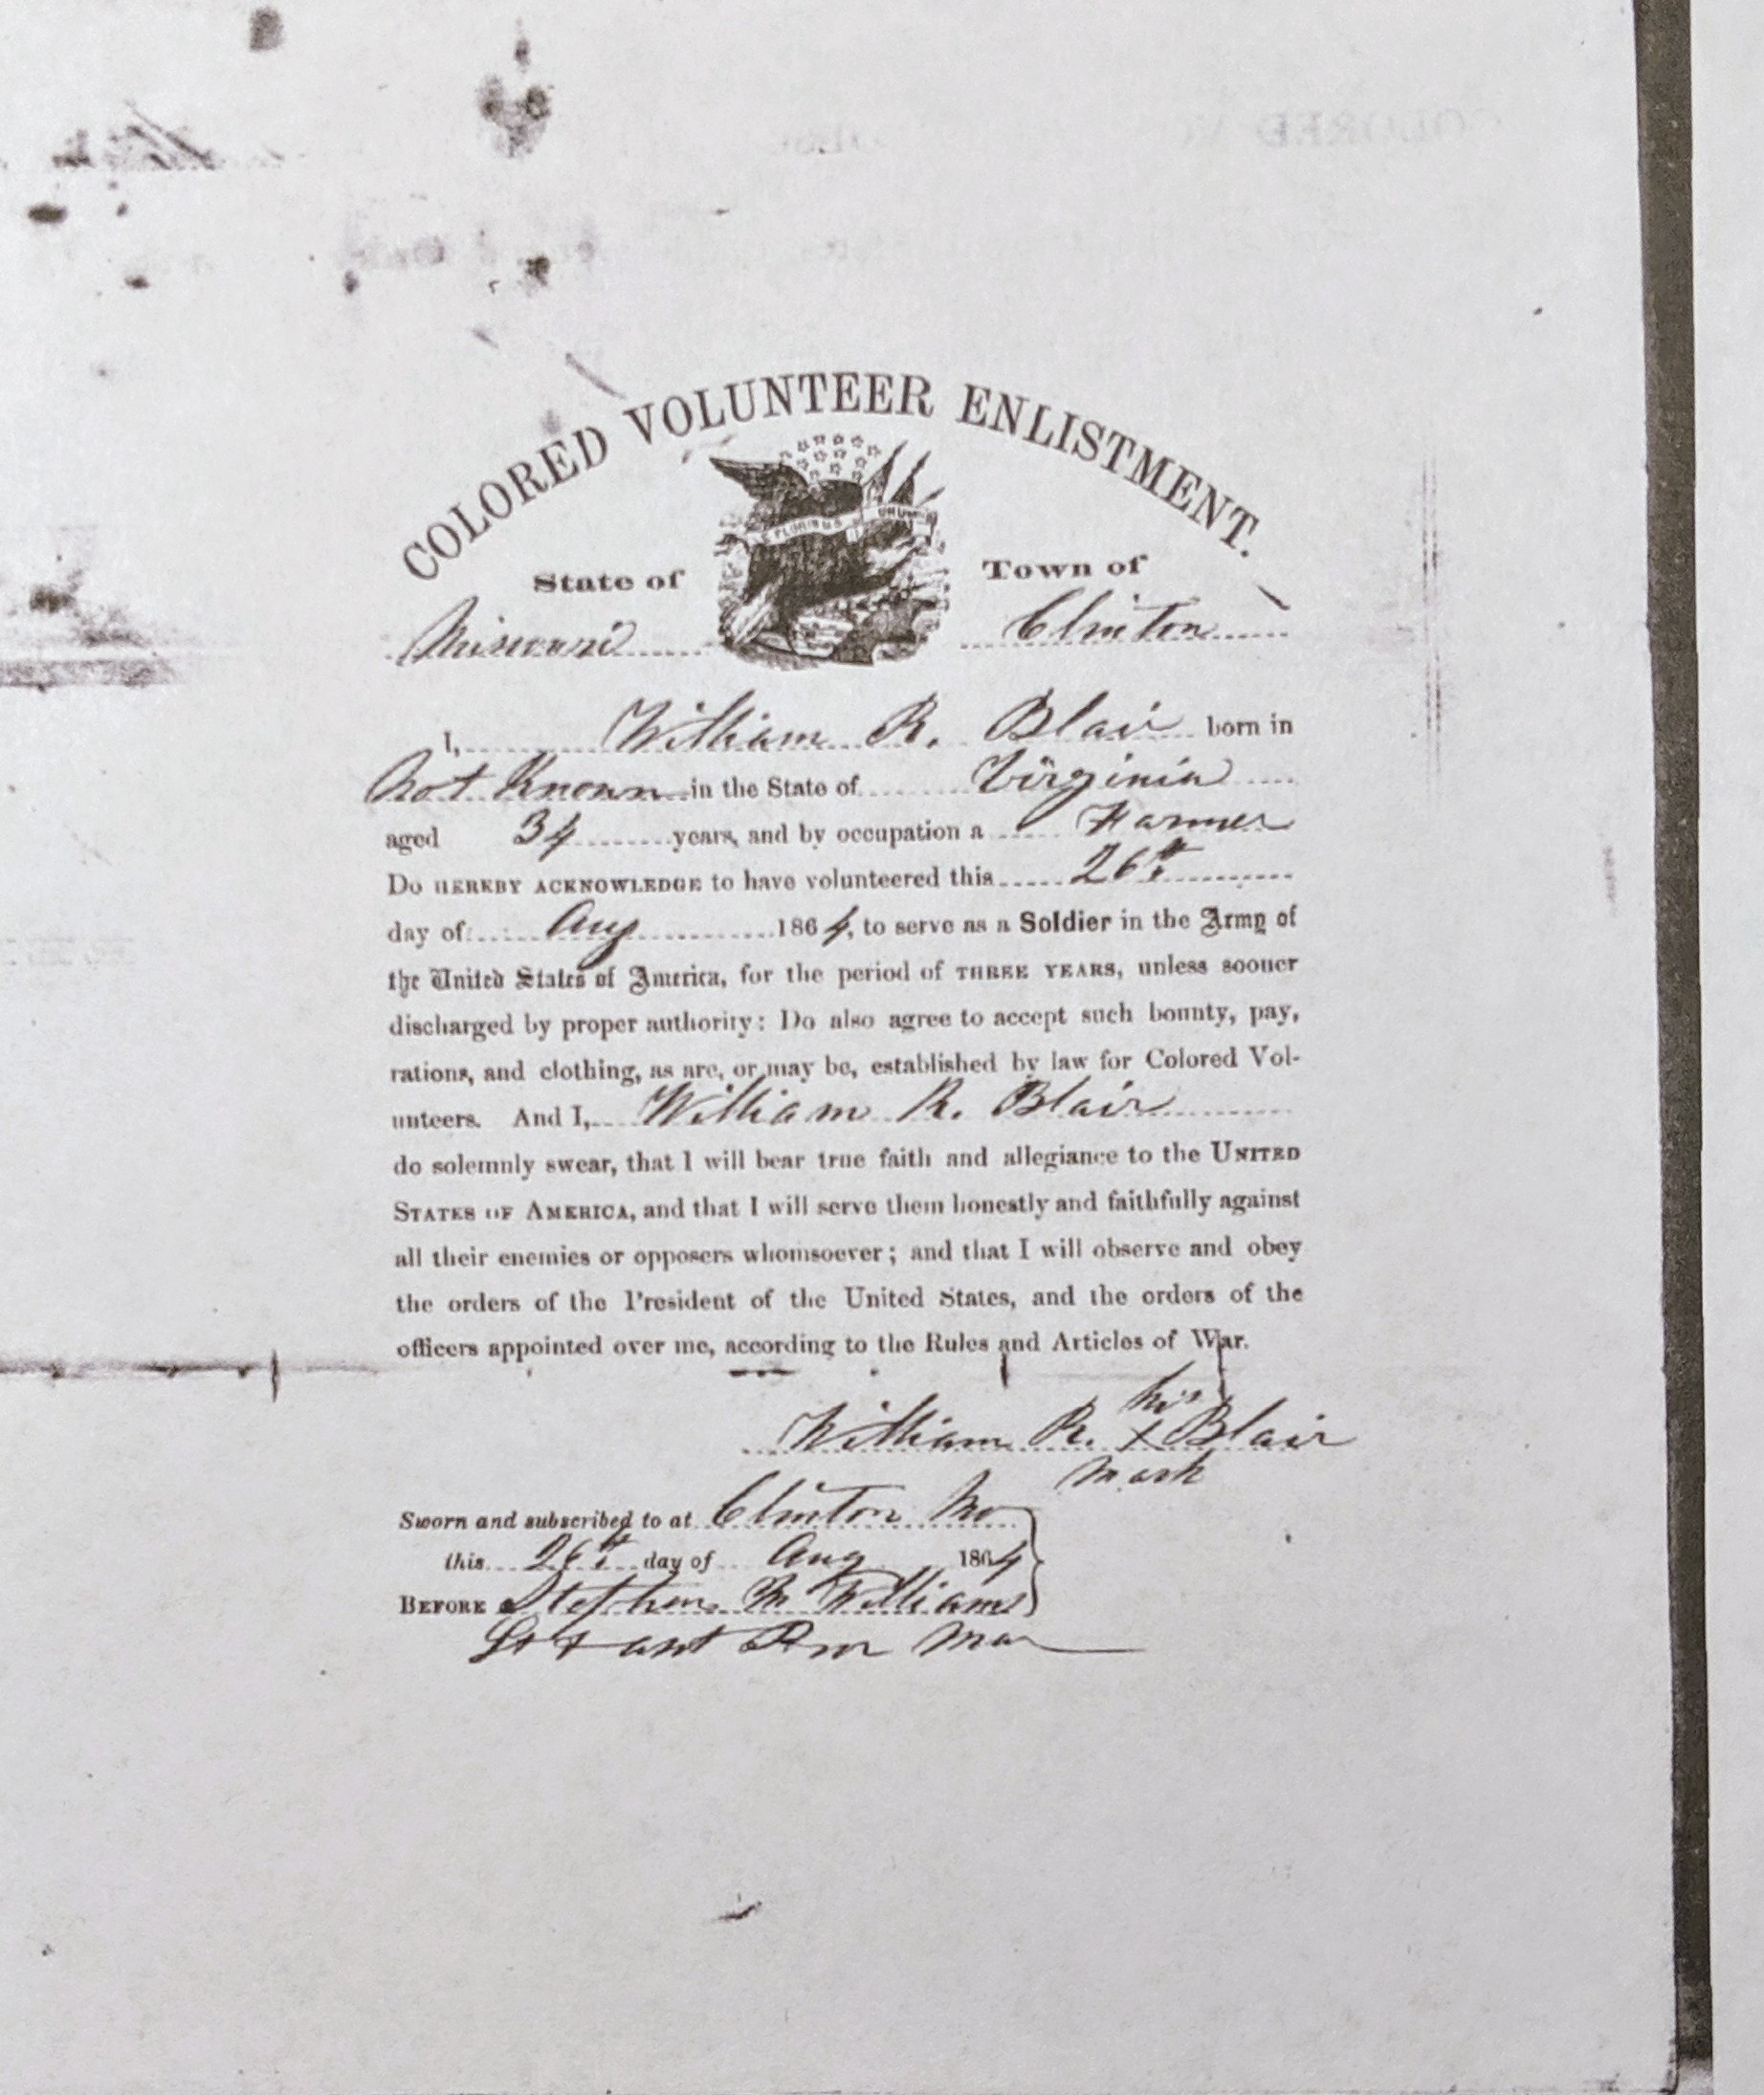 COLORED VOLUNTEER ENLISTMENT.
E PLURIBUS UNUM
State of Town of
Missouri Clinton
I, William R. Blair born in
Not Known in the State of Virginia
aged 34 years, and by occupation a Farmer
DO HEREBY ACKNOWLEDGE to have volunteered this 26th
day of Aug 1864, to serve as a Soldier in the Army of
the United States of America, for the period of THREE YEARS, unless sooner
discharged by proper authority: Do also agree to accept such bounty, pay,
rations, and clothing, as are, or may be, established by law for Colored Vol-
unteers. And I, William R. Blair
do solemnly swear, that I will bear true faith and allegiance to the UNITED
STATES OF AMERICA, and that I will serve them honestly and faithfully against
all their enemies or opposers whomsoever; and that I will observe and obey
the orders of the President of the United States, and the orders of the
officers appointed over me, according to the Rules and Articles of War.
his
William R. X Blair
mark
Sworn and subscribed to at Clinton Mo
this 26th day of Aug 1864
BEFORE Stephen Williams
Lt & asst Mar